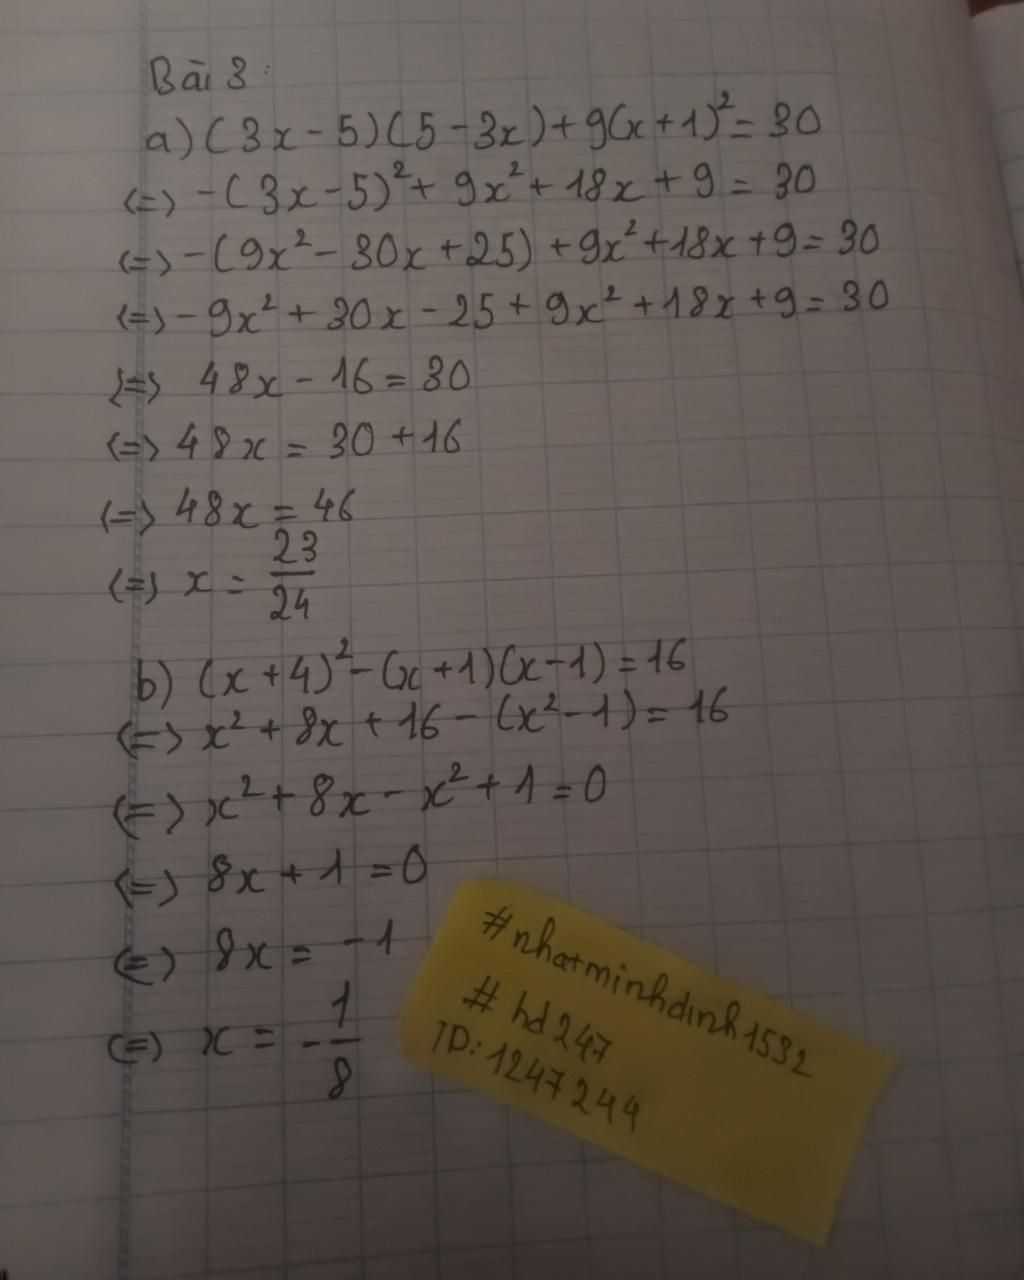 Bài 3:
a) (3x - 5)(5 - 3x) + 9(x + 1)² = 30
<=> -(3x - 5)² + 9x² + 18x + 9 = 30
<=> -(9x² - 30x + 25) + 9x² + 18x + 9 = 30
<=> -9x² + 30x - 25 + 9x² + 18x + 9 = 30
<=> 48x - 16 = 30
<=> 48x = 30 + 16
<=> 48x = 46
<=> x = 23/24
b) (x + 4)² - (x + 1)(x - 1) = 16
<=> x² + 8x + 16 - (x² - 1) = 16
<=> x² + 8x - x² + 1 = 0
<=> 8x + 1 = 0
<=> 8x = -1
<=> x = -1/8
#nhatminhdinh1532
# hd247
ID: 1247244